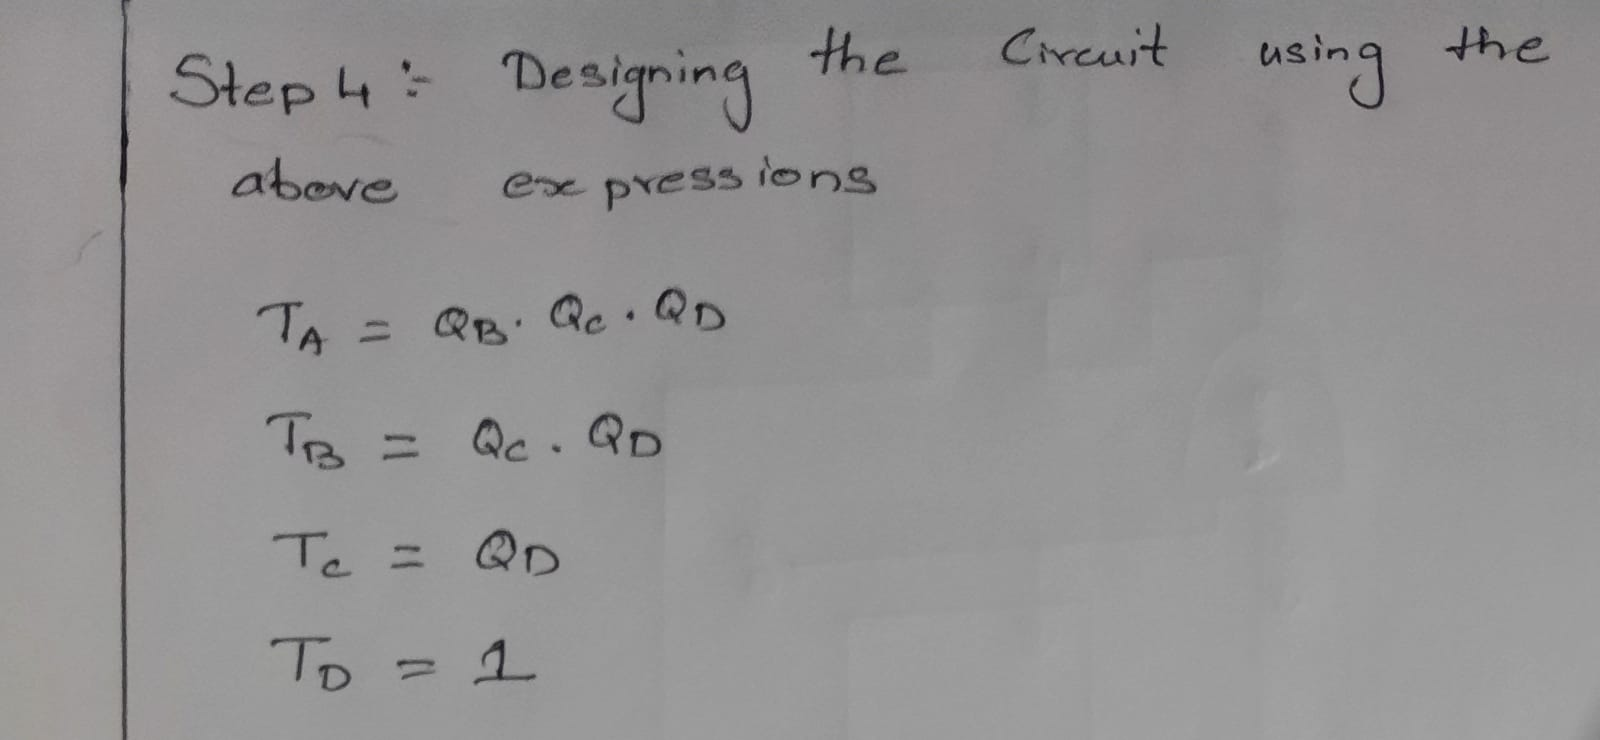 Step 4 :- Designing the Circuit using the
above expressions
TA = QB . QC . QD
TB = QC . QD
TC = QD
TD = 1